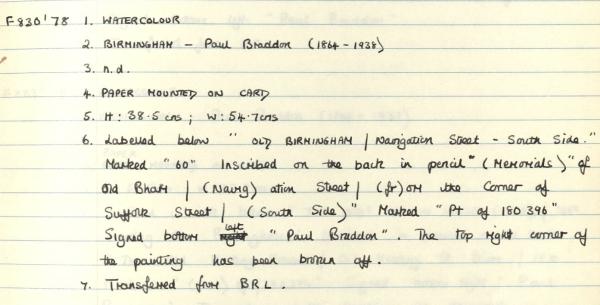 F830'78 1. WATERCOLOUR
2. BIRMINGHAM - Paul Braddon (1864-1938)
3. n.d.
4. PAPER MOUNTED ON CARD
5. H: 38.5 cms ; W: 54.7cms
6. Labelled below " OLD BIRMINGHAM / Navigation Street - South Side."
Marked "60" Inscribed on the back in pencil "(Memorials)" of
Old Bham / (Navig) ation Street / (fr)om the Corner of
Suffolk Street / (South Side)" Marked "Pt of 180396"
Signed bottom left "Paul Braddon". The top right corner of
the painting has been broken off.
7. Transferred from BRL.